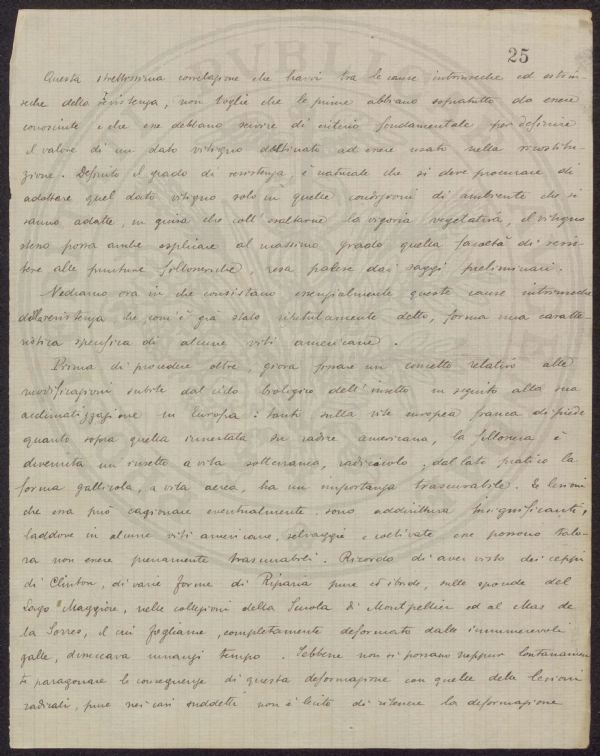 25
Questa strettissima correlazione che havvi tra le cause intrinseche ed estrin-
seche della resistenza, non toglie che le prime abbiano sopratutto da essere
conosciute e che esse debbano servire di criterio fondamentale per definire
il valore di un dato vitigno destinato ad essere usato nella ricostitu-
zione. Definito il grado di resistenza, è naturale che si deve procurare di
adottare quel dato vitigno solo in quelle condizioni di ambiente che si
sanno adatte, in guisa che coll'esaltarne la vigoria vegetativa, il vitigno
stesso possa anche esplicare al massimo grado quella facoltà di resis-
tere alle punture fillosseriche, resa palese dai saggi preliminari.
Vediamo ora in che consistano essenzialmente queste cause intrinseche
della resistenza che com'è già stato ripetutamente detto, forma una caratte-
ristica specifica di alcune viti americane.
Prima di procedere oltre, giova fissare un concetto relativo alle
modificazioni subite dal ciclo biologico dell'insetto in seguito alla sua
acclimatizzazione in Europa: tanto sulla vite europea franca di piede
quanto sopra quella innestata su radice americana, la fillossera è
divenuta un insetto a vita sotterranea, radicicolo, dal lato pratico la
forma gallicola, a vita aerea, ha un'importanza trascurabile. Le lesioni
che essa può cagionare eventualmente sono addirittura insignificanti,
laddove in alcune viti americane, selvaggie e coltivate esse possono talo-
ra non essere pienamente trascurabili. Ricordo di aver visto dei ceppi
di Clinton, di varie forme di Riparia pure ed ibride, sulle sponde del
Lago Maggiore, nelle collezioni della Scuola di Montpellier ed al Mas de
la Sorres, il cui fogliame, completamente deformato dalle innumerevoli
galle, disseccava innanzi tempo. Sebbene non si possano neppur lontanamen-
te paragonare le conseguenze di questa deformazione con quelle delle lesioni
radicali, pure nei casi suddetti non è lecito di ritenere la deformazione